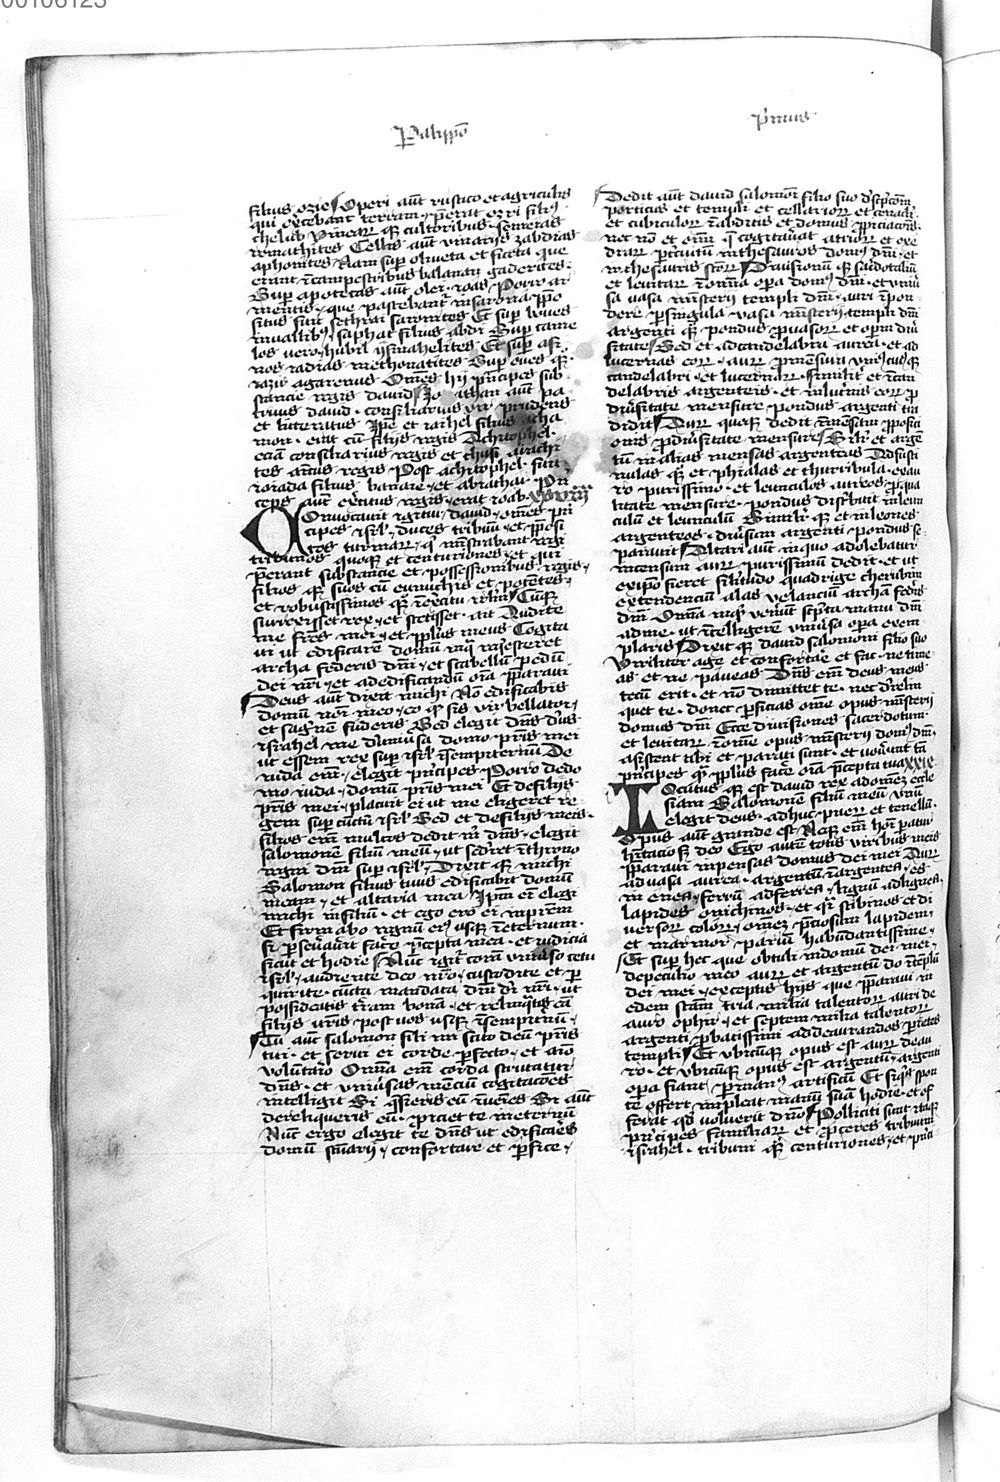 00106123
Palippō
Primus
filius ozie Operi aūt rustico et agricultis
qui exercebant terram perat ezri filiꝰ
chelub Vinearꝝ qꝫ cultoribus semeias
romathites Cellis aūt vinarijs zabdias
aphonites Nam sup oliueta et ficeta que
erant ī campestribus balanan gaderites
Sup apotecas aūt olei ioas Porro ar
mentis que pascebant in sarona ppō
situs fuit sethrai saronites Et sup boues
in vallibꝰ saphat filius abdi Sup came
los vero hubil ysmahelites Et sup asi
nos iadias methonatites Sup oues qꝫ
iaziz agarenus Om̄es hij pncipes sub
stancie regis dauid Jonathan aūt pa
truus dauid consiliarius vir prudens
et litteratus Jpe et iaihel filius acha
moni erāt cū filijs regis Achitophel
eciā consiliarius regis et chusi arachi
tes amicus regis Post achitophel fuit
ioiada filius banaie et abiathar Prī
ceps aūt exercitus regis erat ioab xxviij
Conuocauit igitur dauid om̄es prī
cipes isrl duces tribuū et pposi
tos turmarꝝ qī mīstrabant regi
tribunos quoqꝫ et centuriones et qui
perant substancie et possessionibus regis
filios qꝫ suos cū eunuchis et potētes
et robustissimos qꝫ ī exercitu irlm̄ Cūqꝫ
surrexisset rex et stetisset ait Audite
me frēs mei et pplus meus Cogita
ui ut edificarē domū in qua requiesceret
archa federis dnī et scabellū pedū
dei nrī et ad edificandū om̄ia pparaui
Deus aūt dixit michi Nō edificabis
domū noī meo eo qꝫ sis vir bellator
et sāgnē fuderis Sed elegit dns deus
israhel me de vniūsa domo pris mei
ut essem rex sup isrl ī sempiternū De
iuda em̄ elegit pncipes Porro de do
mo iuda domū pris mei Et de filijs
pris mei placuit ei ut me eligeret re
gem sup cūctū isrl Sed et de filijs meis
filios em̄ multos dedit m̄ dns elegit
salomonē filiū meū ut sederet ī throno
regni dnī sup isrl Dixit qꝫ michi
Salomon filius tuus edificabit domū
meam et altaria mea Jpm̄ ei elegi
michi in filiū et ego ero ei in prem
Et firmabo regnū eiꝰ usqꝫ ī eternum
si pseuauit facere pcepta mea et iudicia
sicut et hodie Nūc igit coram vniuso cetu
isrl audiente deo nro custodite et per
quirite cūcta mandata dnī dei nrī ut
possideatis tram bonā et relinquatis eā
filijs vris post vos usqꝫ ī sempiternū
Tu aūt salomon fili mi scito deū pris
tui et serui ei corde pfecto et aīo
volūtario Om̄ia em̄ corda scrutatur
dns et vniūsas mēciū cogitacōes
intelligit Si quesieris eū inuēies Si aūt
dereliqueris eū proiciet te in eternū
Nūc ergo elegit te dns ut edificares
domū scuarij confortare et pfice
Dedit aūt dauid salomoī filio suo descpcōm
porticus et templi et cellariorꝝ et cenaclī
et cubiculorꝝ ī abditis et domus ppiciacōis
nec nō et om̄ī qꝫ cogitauerat atriorꝝ et exe
drarꝝ p circuitū in thesauros domꝰ dnī et
in thesauros scorꝝ Diuisionū qꝫ sacerdotaliū
et leuitarꝝ ī om̄ia opa domꝰ dnī et vniū
sa vasa mīsterij templi dnī auri ī pon
dere p singula vasa mīsterij templi dnī
argenti qꝫ pondus p vasorꝝ et operū diū
sitate Sed et ad candelabra aurea et ad
lucernas eorꝝ aurꝝ p mensura vniꝰcuiꝰqꝫ
candelabri et lucernarꝝ similiter et ī can
delabris argenteis et in lucernis eorꝝ p
diūsitate mensure pondus argenti tra
didit Aurꝝ quoqꝫ dedit ī mēsam pposici
onis p diūsitate mensure Siliter et argē
tū in alias mensas argenteas Ad fusci
nulas qꝫ et phialas et thurribula ex au
ro purissimo et leunculos aureos p qua
litate mensure pondus distribuit in leun
culū et leunculū Similiter qꝫ et in leones
argenteos diūsum argenti pondus se
parauit Altari aūt in quo adolebatur
incensum aurꝝ purissimū dedit et ut
ex ipo fieret similitudo quadrige cherubim
extendenciū alas velanciū archā federis
dnī Om̄ia inqt venerūt scpta manu dnī
ad me ut ītelligerē vniūsa opa exem
plaris Dixit qꝫ dauid salomoni filio suo
Viriliter age et confortare et fac ne time
as et ne paueas Dns em̄ deus meus
tecū erit et nō dimittet te nec derelin
quet te donec pficias om̄e opus mīsterij
domus dnī Ecce diuisiones sacerdotum
et leuitarꝝ ī om̄e opus mīsterij domꝰ dnī
asistent tibi et parati sunt et nouerūt tā
pncipes qꝫ pplus facere om̄ia pcepta tua xxix
Locutus qꝫ est dauid rex ad om̄ez eccle
siam Salomonē filiū meū vnū
elegit deus adhuc puerꝝ et tenellū
Opus aūt grande est Neqꝫ em̄ hoī patur
hītacio sꝫ deo Ego autē totis viribus meis
pparaui inpensas domus dei mei Aurꝝ
ad vasa aurea argentū ī argentea es
in enea ferrū ad ferrea lignū ad lignea
lapides onichinos et qī stibinos et di
uersorꝝ colorꝝ om̄ez pciosum lapidem
et marmor pariū habūdantissime
Et sup hec que obtuli in domū dei mei
de peculio meo aurꝝ et argentū do ī templū
dei mei exceptis hijs que pparaui in
edem scām tria milia talentorꝝ auri de
auro ophir et septem milia talentorꝝ
argenti pbatissimi ad deaurandos parietes
templi Et vbicūqꝫ opus est aurꝝ de au
ro et vbicūqꝫ opus est argentū argenti
opa fiant p manꝰ artificū Et si quis spon
te offert impleat manū suā hodie et of
ferat qd voluerit dnō Polliciti sunt itaqꝫ
pncipes familiarꝝ et pceres tribuum
israhel tribuni qꝫ centuriones et prici